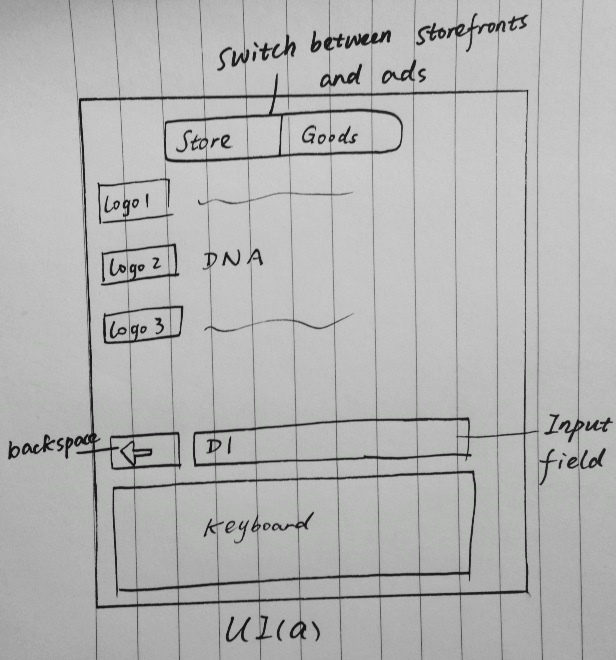 Switch between storefronts
and ads
Store
Goods
Logo 1
Logo 2
DNA
Logo 3
backspace
DI
Input
field
Keyboard
UI(a)